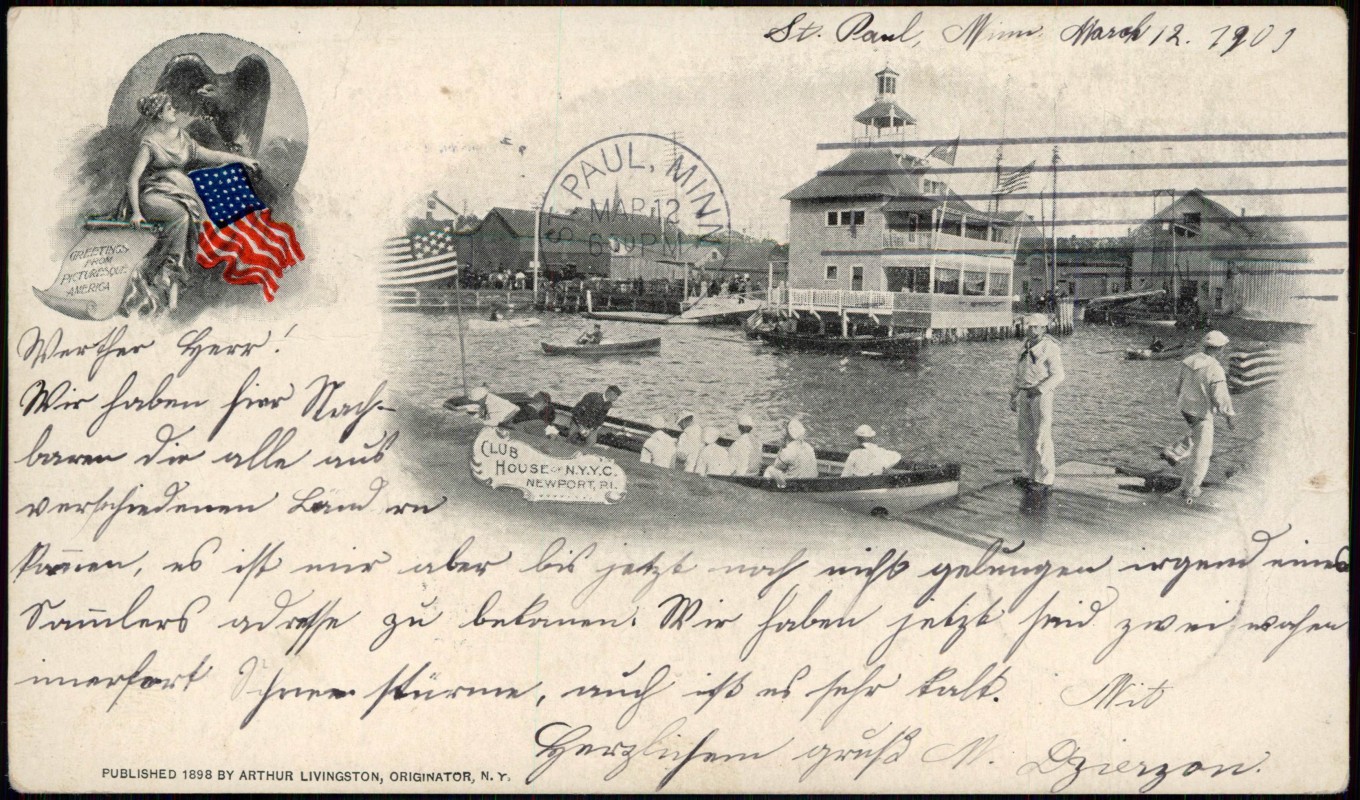 St. Paul, Minn. March 12. 1901
ST. PAUL, MINN.
MAR 12
6 30 PM
GREETINGS
FROM
PICTURESQUE
AMERICA
CLUB
HOUSE N.Y.Y.C.
NEWPORT, R.I.
Werther Herr!
Wir haben hier Nach-
baren die alle aus
verschiedenen Ländern
kom̄en, es ist mir aber bis jetzt noch nicht gelungen irgend eines
Sam̄lers adresse zu bekomen. Wir haben jetzt seid zwei wochen
imerfort Schnee stürme, auch ist es sehr kalt. Mit
Herzlichem gruß M. Dzierzon.
PUBLISHED 1898 BY ARTHUR LIVINGSTON, ORIGINATOR, N.Y.